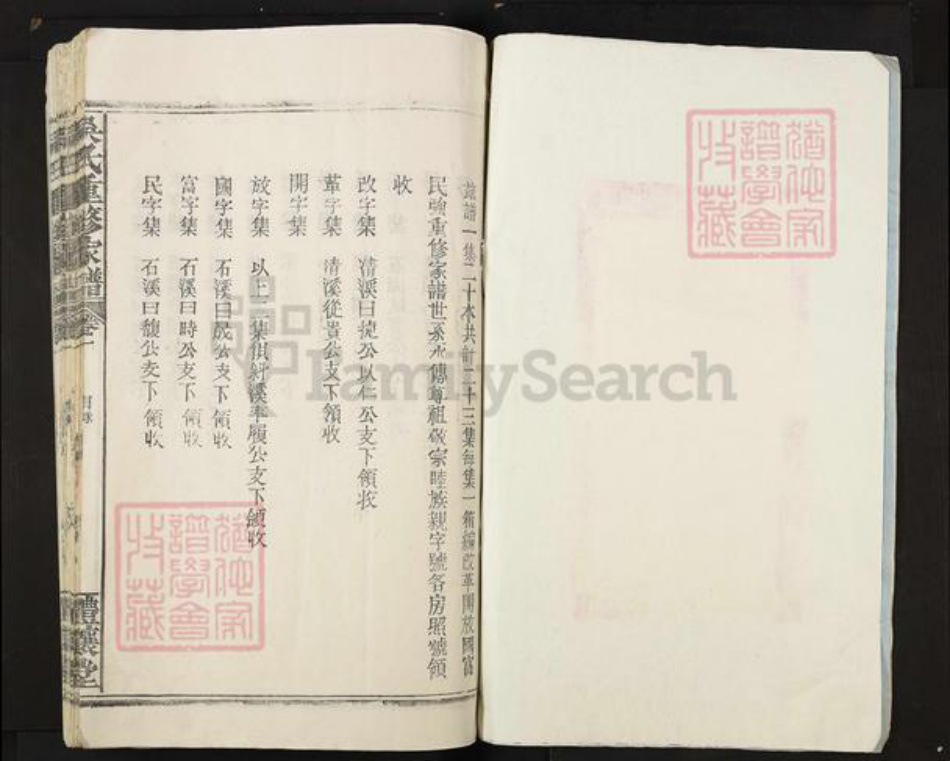 該譜一集二十本共計二十三集每集一箱編改革開放國富
民強重修家譜世系永傳尊祖敬宗睦族親字號各房照號領
收
改字集 清溪曰捷公以仁公支下領收
革字集 清溪從貴公支下領收
開字集
放字集 以上二集俱舒溪率履公支下領收
國字集 石溪曰晟公支下領收
富字集 石溪曰時公支下領收
民字集 石溪曰馥公支下領收
吳氏重修家譜 卷一 目錄 禮讓堂
猶他家譜學會收藏
猶他家譜學會收藏
FamilySearch